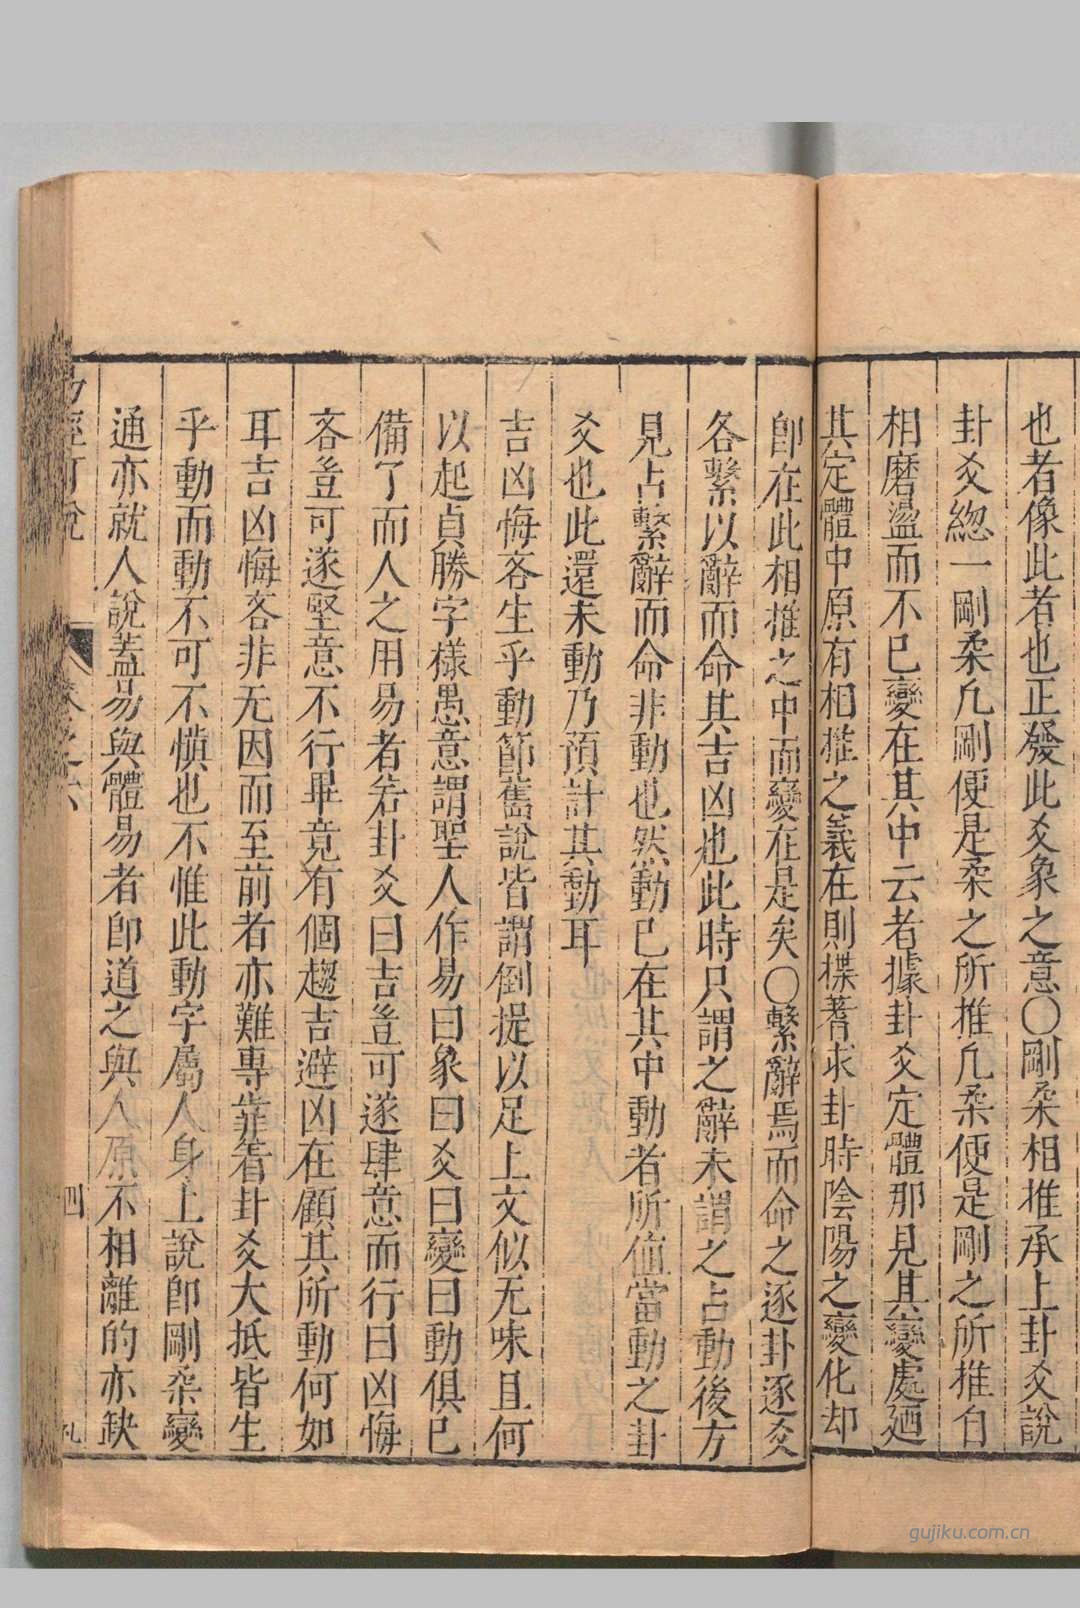 也者像此者也正發此爻象之意〇剛柔相推承上卦爻說
卦爻緫一剛柔凢剛便是柔之所推凢柔便是剛之所推自
相磨盪而不已變在其中云者據卦爻定體那見其變處廼
其定體中原有相推之義在則揲蓍求卦時陰陽之變化却
卽在此相推之中而變在是矣〇繫辭焉而命之逐卦逐爻
各繫以辭而命其吉凶也此時只謂之辭未謂之占動後方
見占繫辭而命非動也然動已在其中動者所值當動之卦
爻也此還未動乃預計其動耳
吉凶悔吝生乎動節舊說皆謂倒提以足上文似无味且何
以起貞勝字樣愚意謂聖人作易曰象曰爻曰變曰動俱已
備了而人之用易者若卦爻曰吉豈可遂肆意而行曰凶悔
吝豈可遂堅意不行畢竟有個趨吉避凶在顧其所動何如
耳吉凶悔吝非无因而至前者亦難專靠著卦爻大抵皆生
乎動而動不可不慎也不惟此動字屬人身上說卽剛柔變
通亦就人說蓋易與體易者卽道之與人原不相離的亦缺
易經可說
卷之六
四